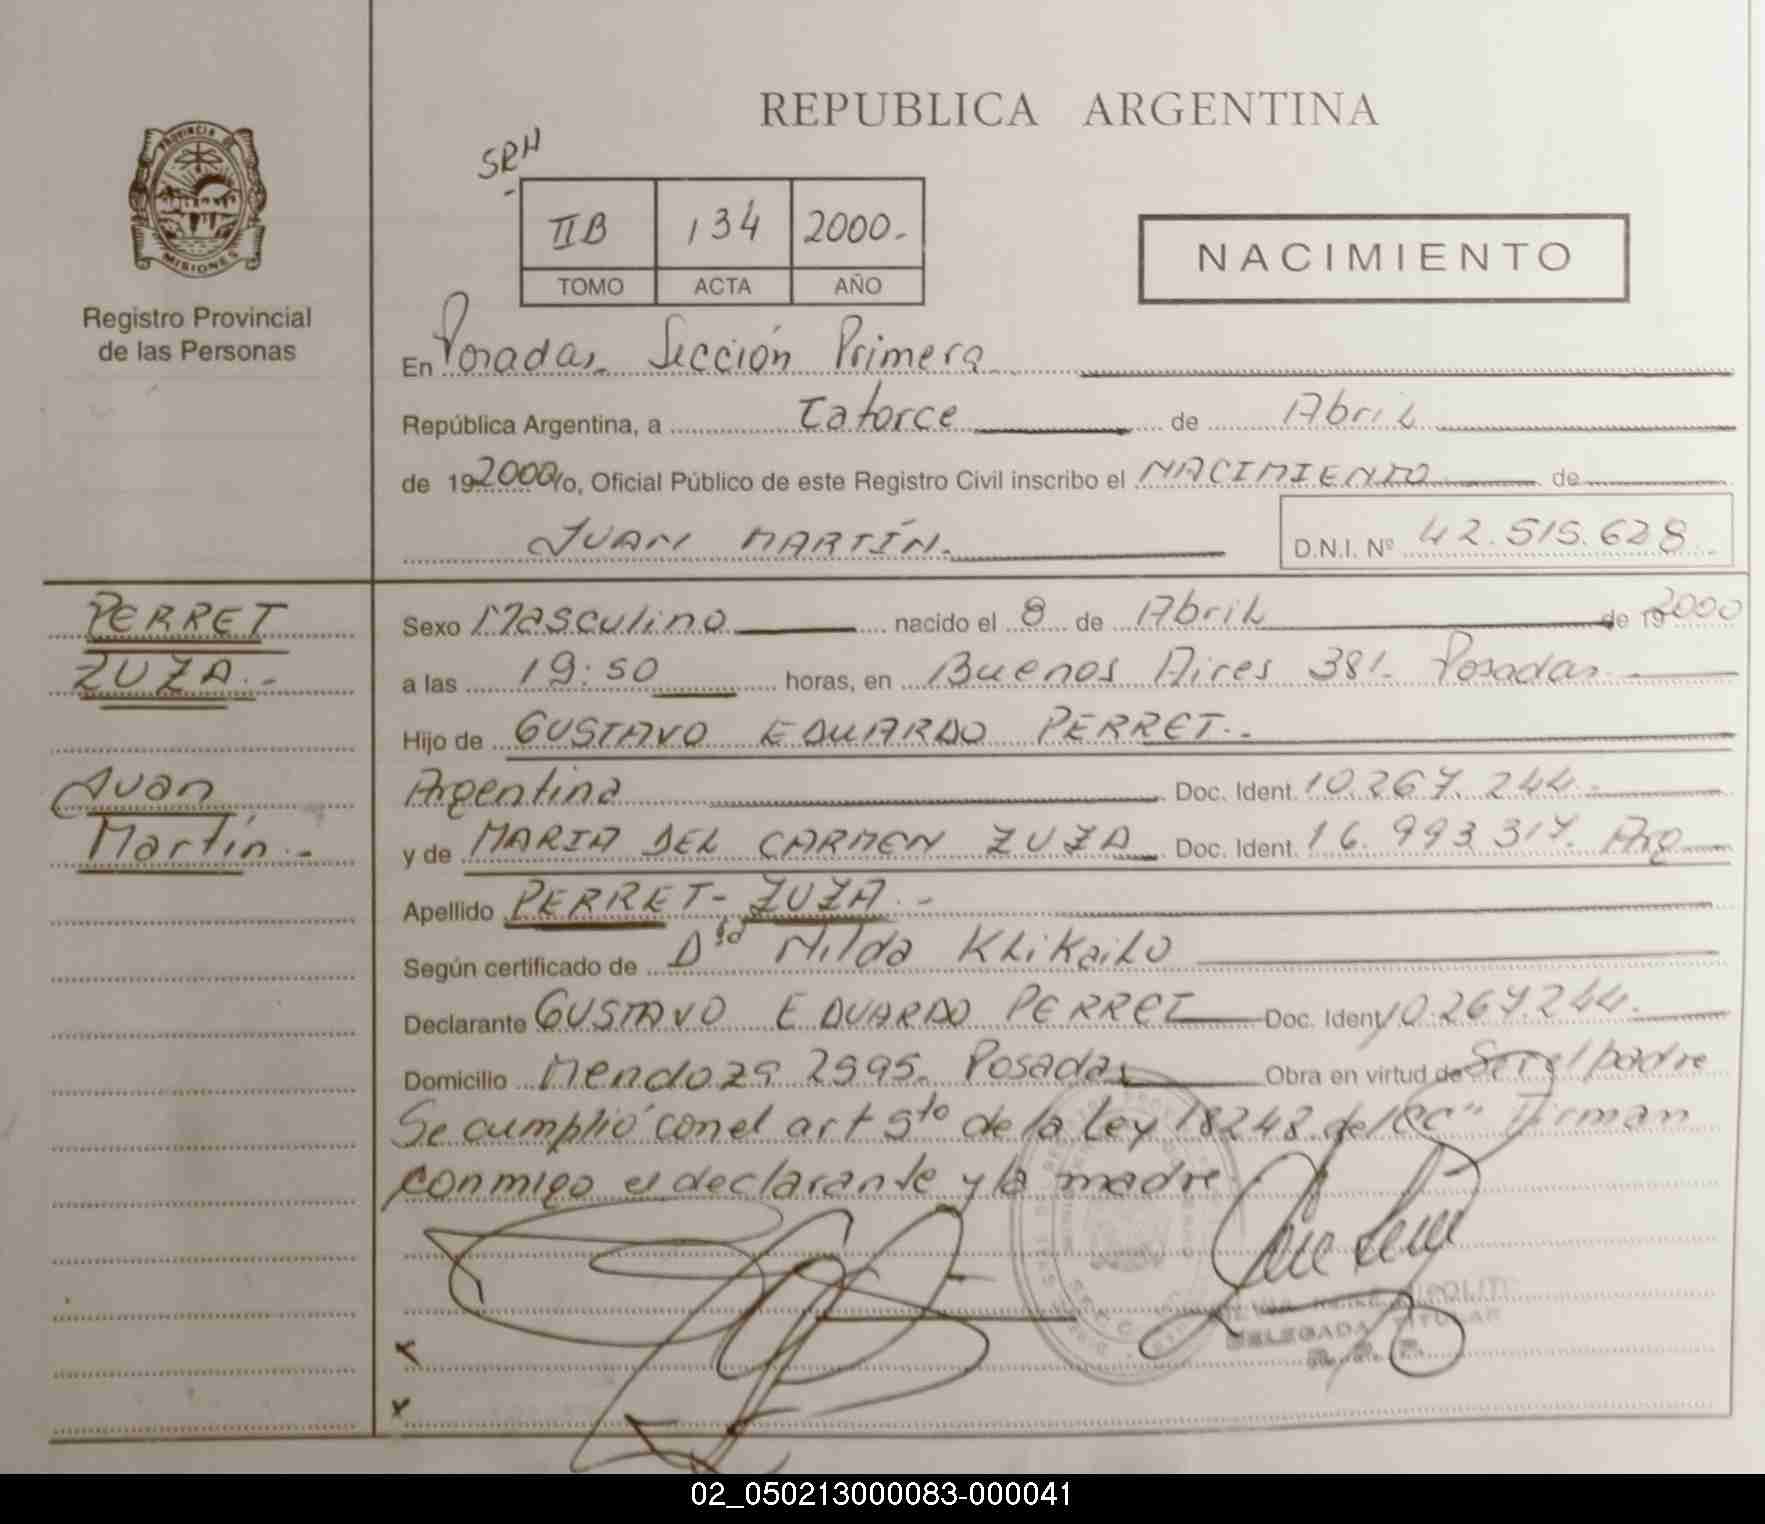 REPUBLICA ARGENTINA
PROVINCIA
MISIONES
Registro Provincial
de las Personas
SRH
IIB 134 2000.-
TOMO ACTA AÑO
NACIMIENTO
En Posadas Sección Primera
República Argentina, a Catorce de Abril
de 19 2000 yo, Oficial Público de este Registro Civil inscribo el NACIMIENTO de
JUAN MARTÍN.
D.N.I. Nº 42.515.628
PERRET
ZUZA.-
Juan
Martín.-
Sexo Masculino nacido el 8 de Abril de 19 2000
a las 19:50 horas, en Buenos Aires 381. Posadas
Hijo de GUSTAVO EDUARDO PERRET.-
Argentina Doc. Ident. 10.267.244.-
y de MARIA DEL CARMEN ZUZA Doc. Ident. 16.993.317. Arg
Apellido PERRET- ZUZA.-
Según certificado de Nilda Klikailo
Declarante GUSTAVO EDUARDO PERRET Doc. Ident 10.267.244.
Domicilio Mendoza 2995. Posadas Obra en virtud de Ser el padre
Se cumplió con el art 5to de la Ley 18248 del CC" Firman
conmigo el declarante y la madre
DELEGADA TITULAR
02_050213000083-000041